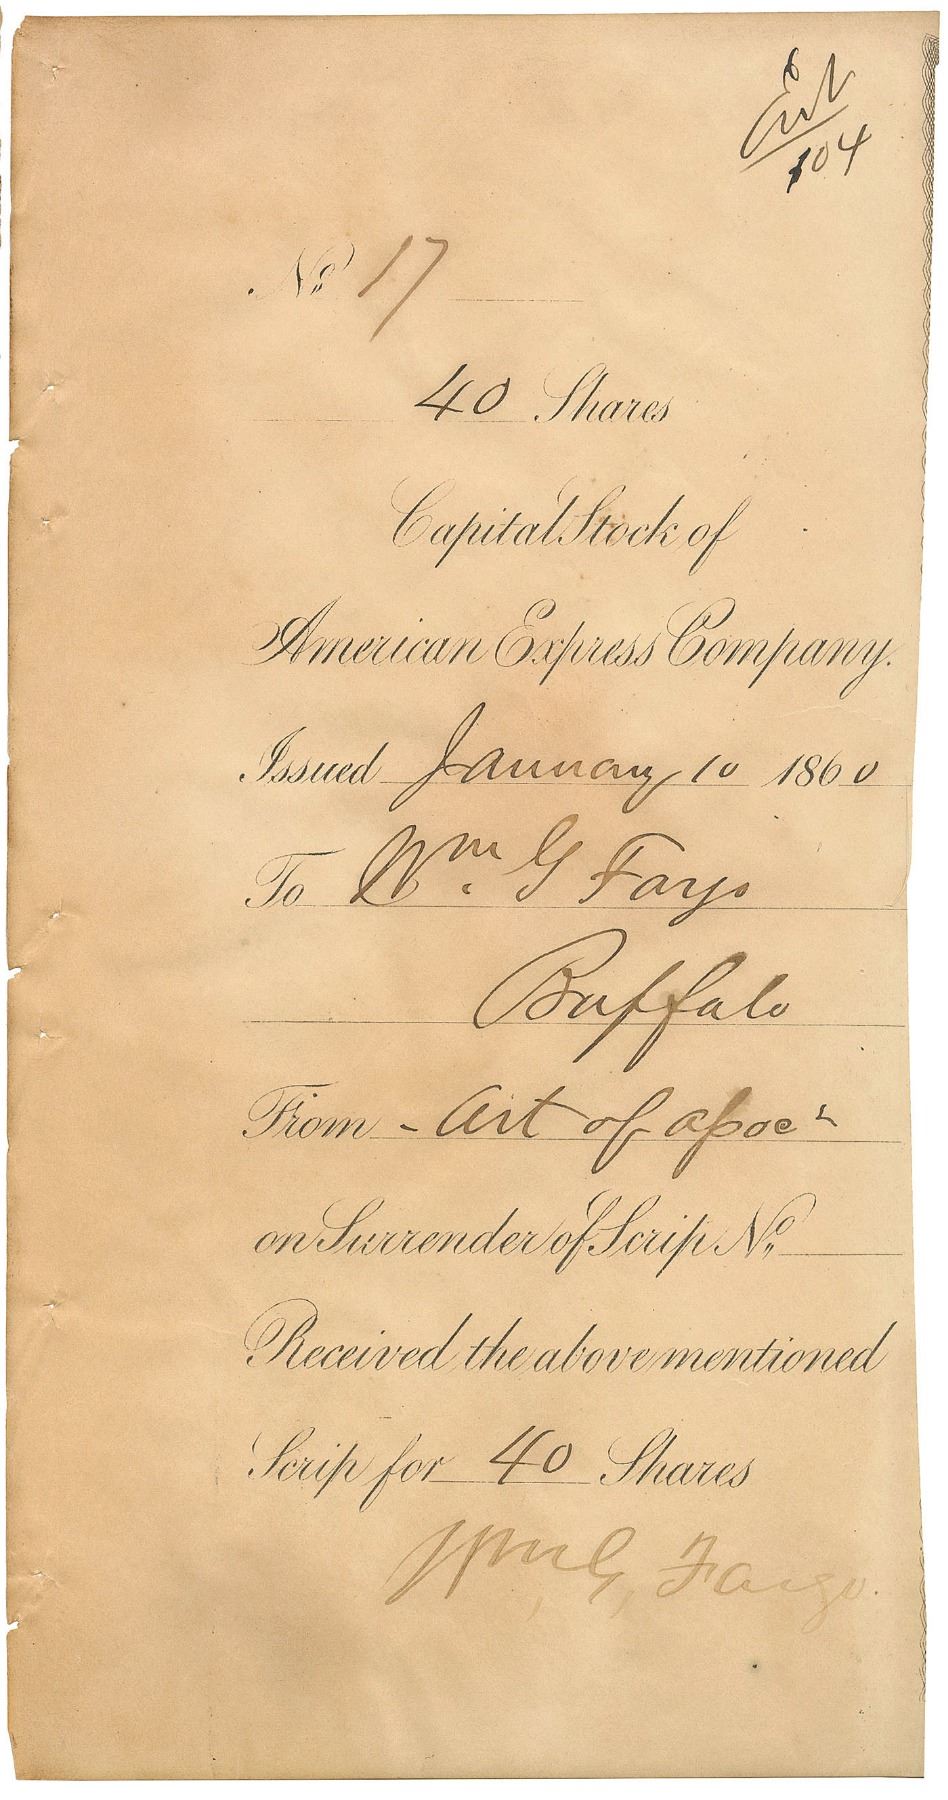 Ent
104
No. 17
40 Shares
Capital Stock of
American Express Company.
Issued January 10 1860
To Wm. G Fargo
Buffalo
From - Art of assocn
on Surrender of Scrip No.
Received the above mentioned
Scrip for 40 Shares
Wm. G. Fargo.